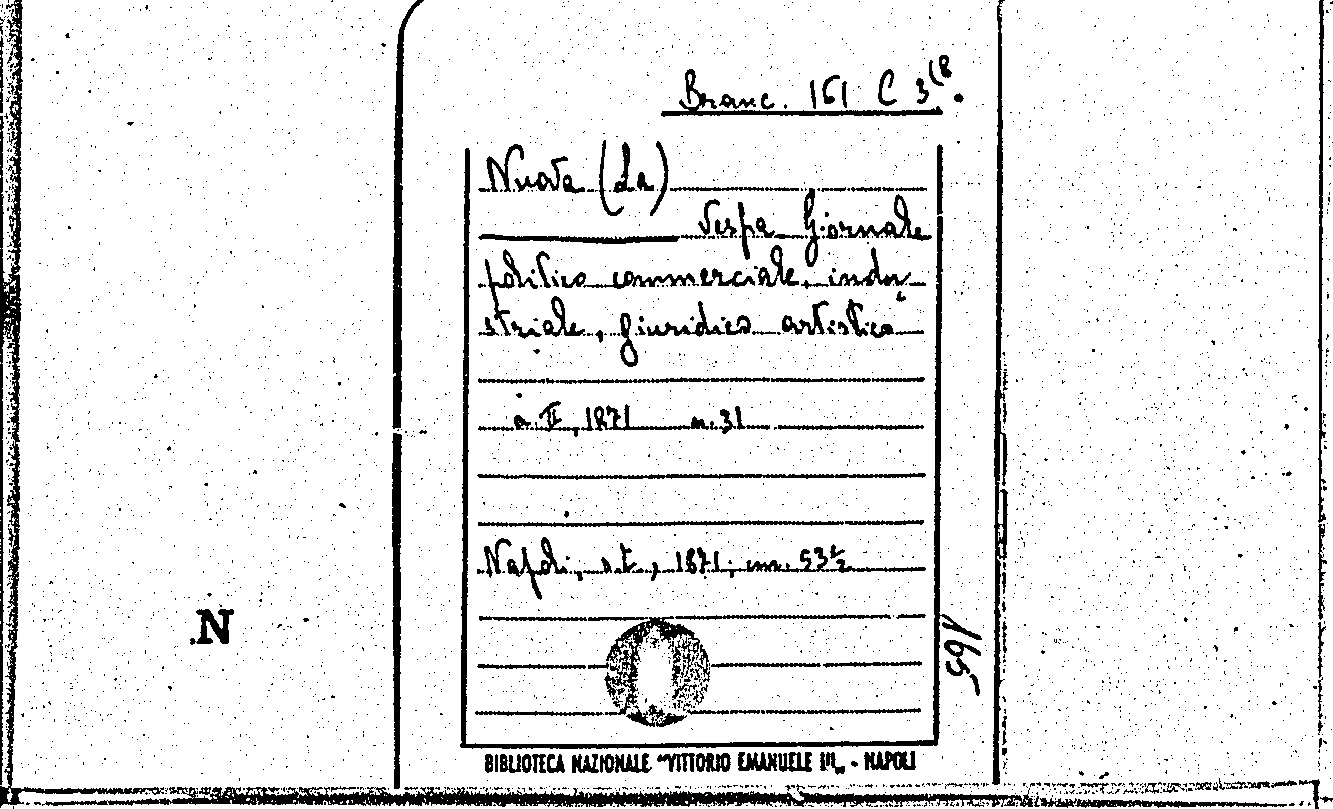 Branc. 161 C 3(8.
Nuova (La)
Vespa Giornale
politico commerciale, indu-
striale, giuridico artistico
a. II, 1871 n. 31
Napoli, s.t., 1871, cm. 53½
165
N
BIBLIOTECA NAZIONALE "VITTORIO EMANUELE III„ - NAPOLI